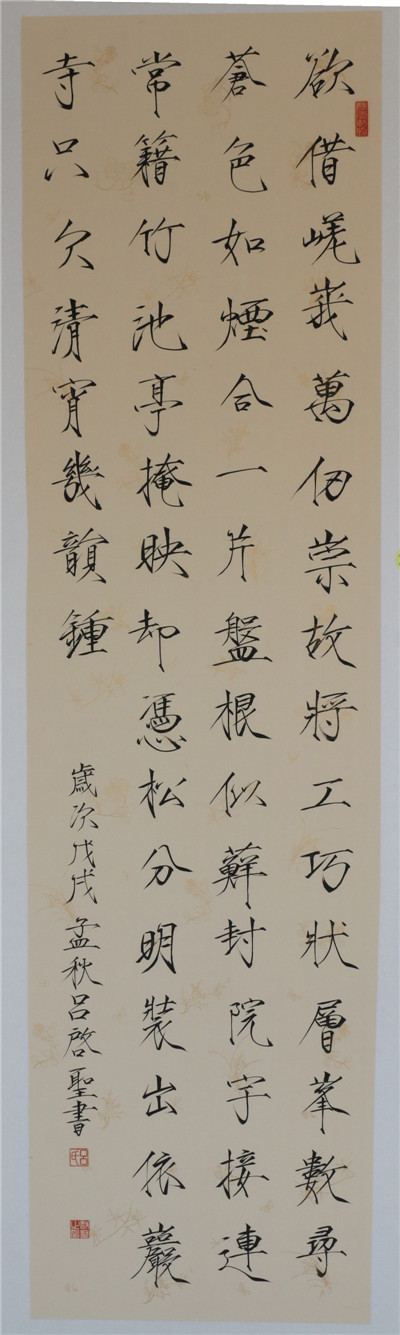 欲借嵯峩萬仞崇故將工巧狀層峯數尋
蒼色如煙合一片盤根似蘚封院宇接連
常籍竹池亭掩映却憑松分明裝出依巖
寺只欠清宵幾韻鍾
歲次戊戌孟秋呂啓聖書